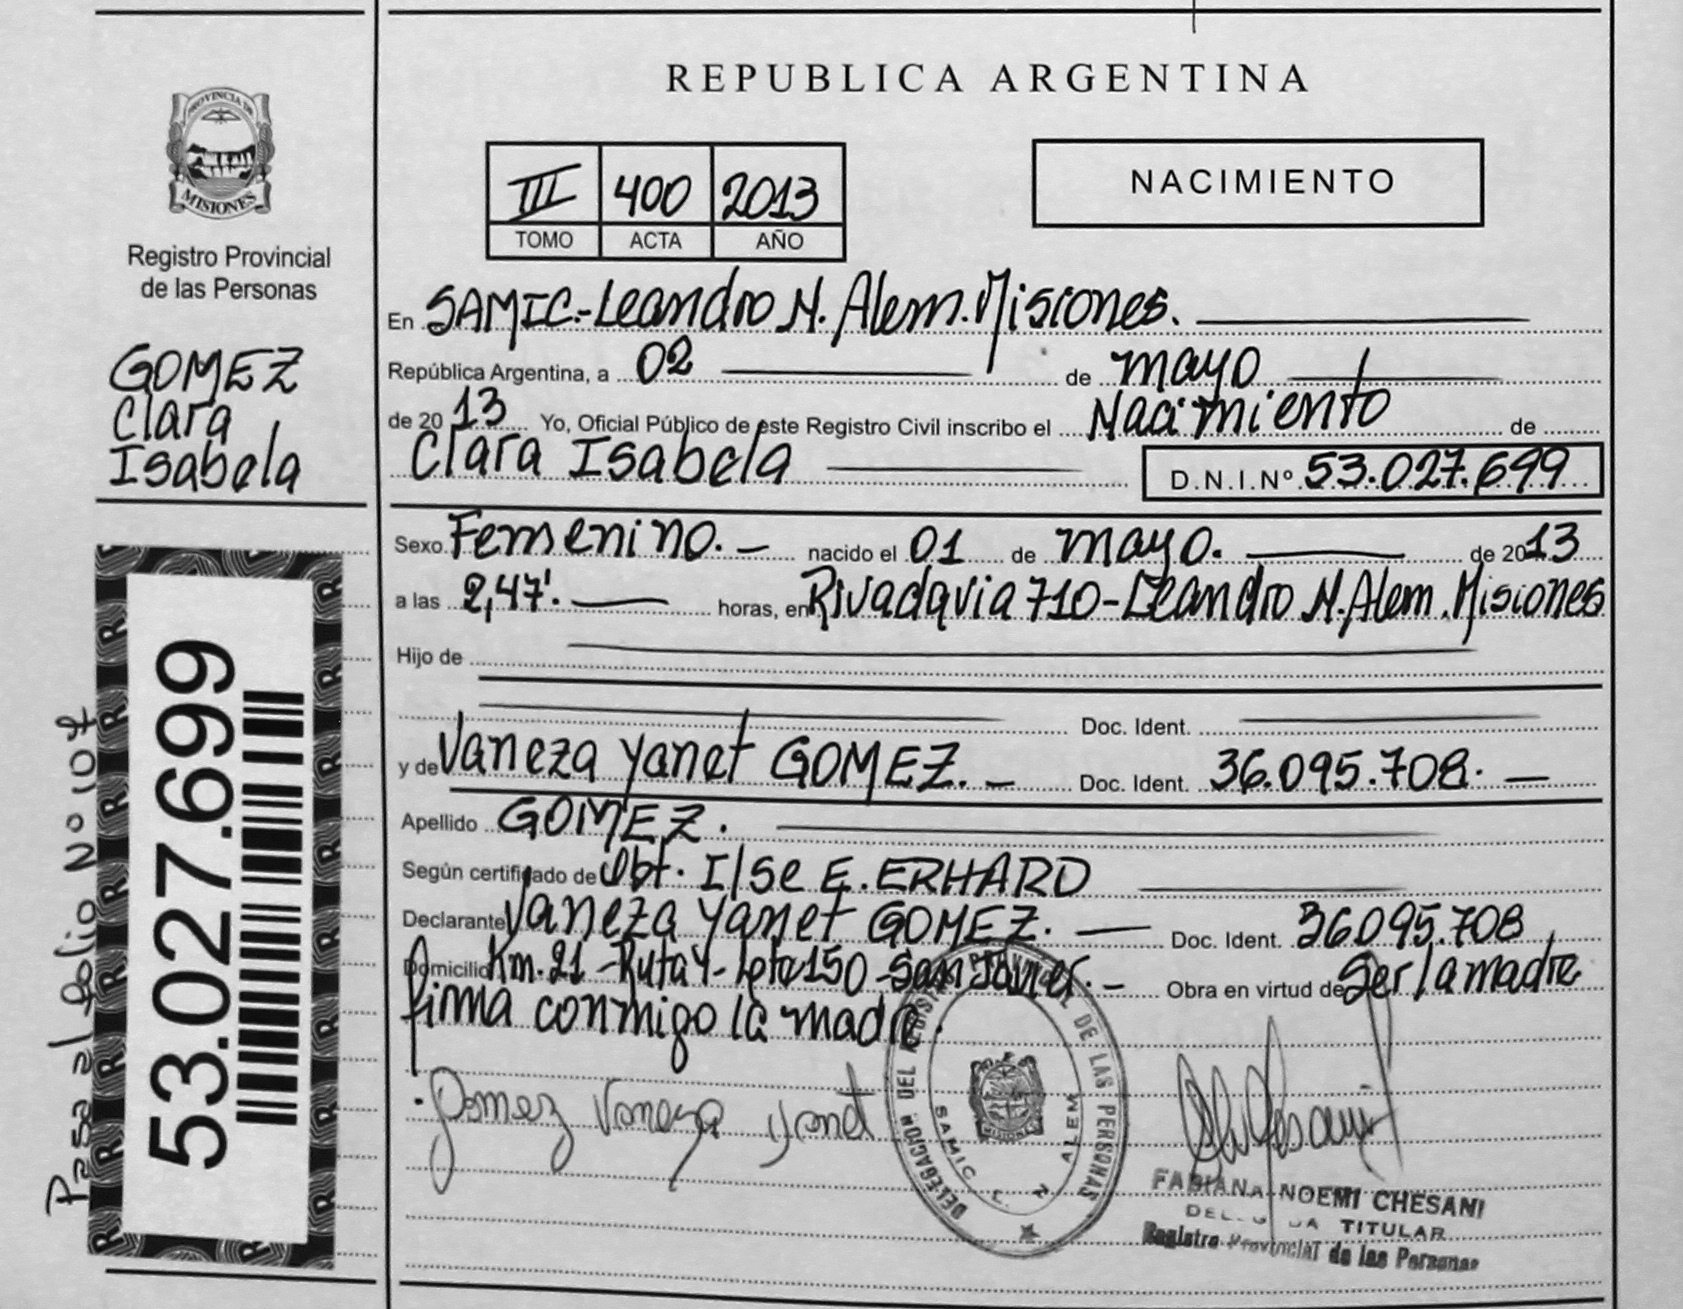 REPUBLICA ARGENTINA
PROVINCIA DE
MISIONES
Registro Provincial
de las Personas
GOMEZ
Clara
Isabela
III 400 2013
TOMO ACTA AÑO
NACIMIENTO
En SAMIC.-Leandro N. Alem.Misiones.
República Argentina, a 02 de mayo
de 2013 Yo, Oficial Público de este Registro Civil inscribo el Nacimiento de
Clara Isabela D.N.I.Nº 53.027.699
Sexo Femenino. nacido el 01 de mayo. de 2013
a las 2,47'. horas, en Rivadavia 710-Leandro N.Alem.Misiones
Hijo de
Doc. Ident.
y de Vaneza Yanet GOMEZ. Doc. Ident. 36.095.708.
Apellido GOMEZ.
Según certificado de Obt. Ilse E. ERHARD
Declarante Vaneza Yanet GOMEZ. Doc. Ident. 36095.708
Domicilio Km.21-Ruta4-Lote150-San Javier. Obra en virtud de Ser la madre
firma conmigo la madre.
Gomez Vaneza Yanet
DELEGACION DEL REGISTRO PROVINCIAL DE LAS PERSONAS
SAMIC L. N. ALEM
MISIONES
FABIANA NOEMI CHESANI
TITULAR
Registro Provincial de las Personas
53.027.699
Pasa al folio Nº